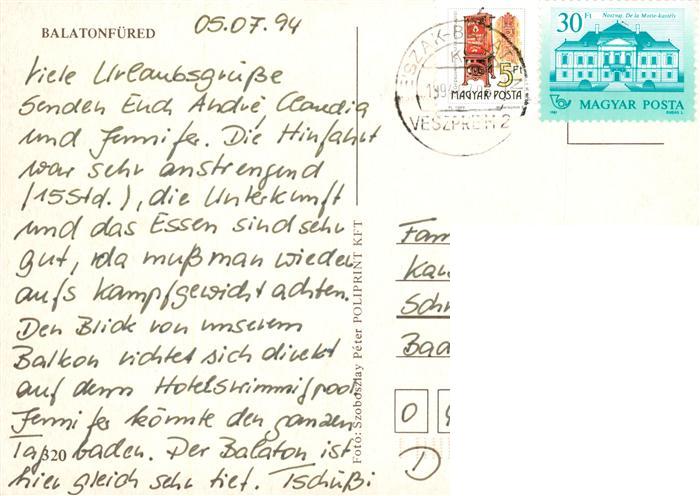 BALATONFÜRED
05.07.94
Viele Urlaubsgrüße
senden Euch André, Claudia
und Jennifer. Die Hinfahrt
war sehr anstrengend
(15Std.), die Unterkunft
und das Essen sind sehr
gut, da muß man wieder
aufs Kampfgewicht achten.
Den Blick von unserem
Balkon richtet sich direkt
auf denn Hotelswimmigpool
Jennifer könnte den ganzen
Tag baden. Der Balaton ist
hier gleich sehr tief. Tschüßi
320
Foto: Szoboszlay Péter POLIPRINT KFT
5 Ft
MAGYAR POSTA
VESZPRÉM 2
30 Ft
Noszvaj, De la Motte-kastély
MAGYAR POSTA
Fam
Kau
Schn
Baa
0
D